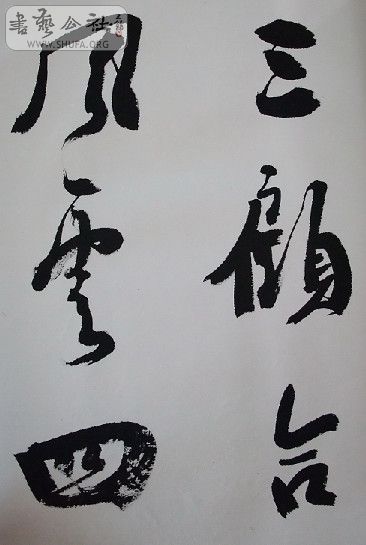 書藝公社
WWW.SHUFA.ORG
三顧合
風雲四